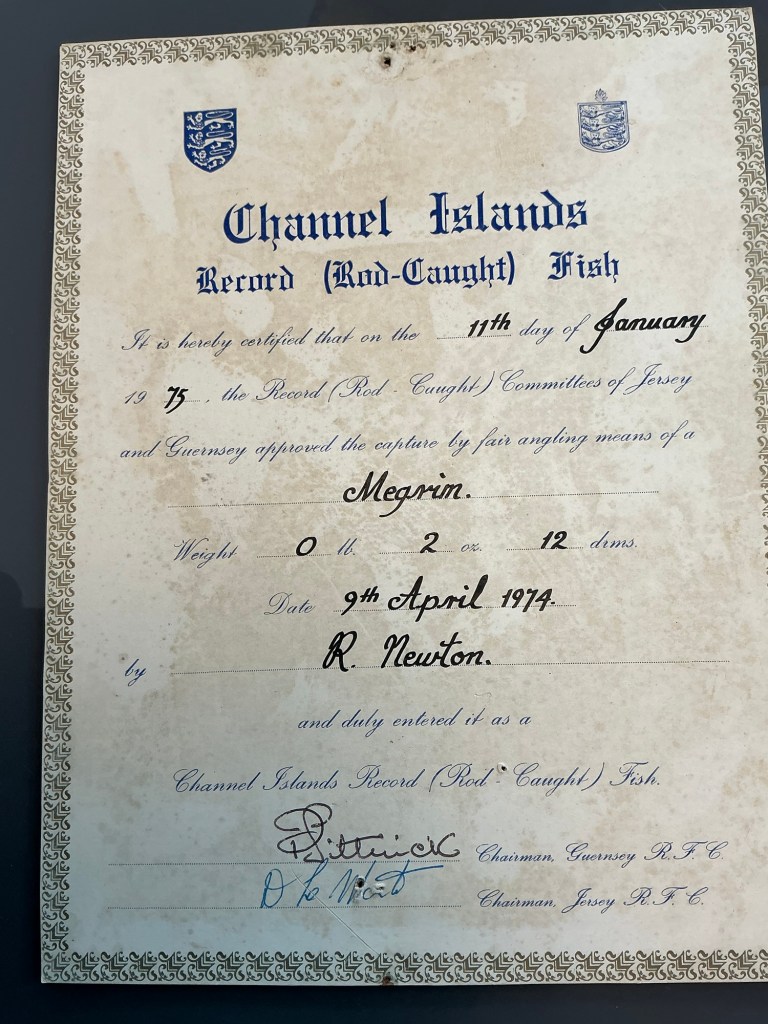 Channel Islands
Record (Rod-Caught) Fish
It is hereby certified that on the 11th day of January
19 75, the Record (Rod-Caught) Committees of Jersey
and Guernsey approved the capture by fair angling means of a
Megrim.
Weight 0 lb. 2 oz. 12 drms.
Date 9th April 1974.
by R. Newton.
and duly entered it as a
Channel Islands Record (Rod-Caught) Fish.
Chairman, Guernsey R.F.C.
Chairman, Jersey R.F.C.